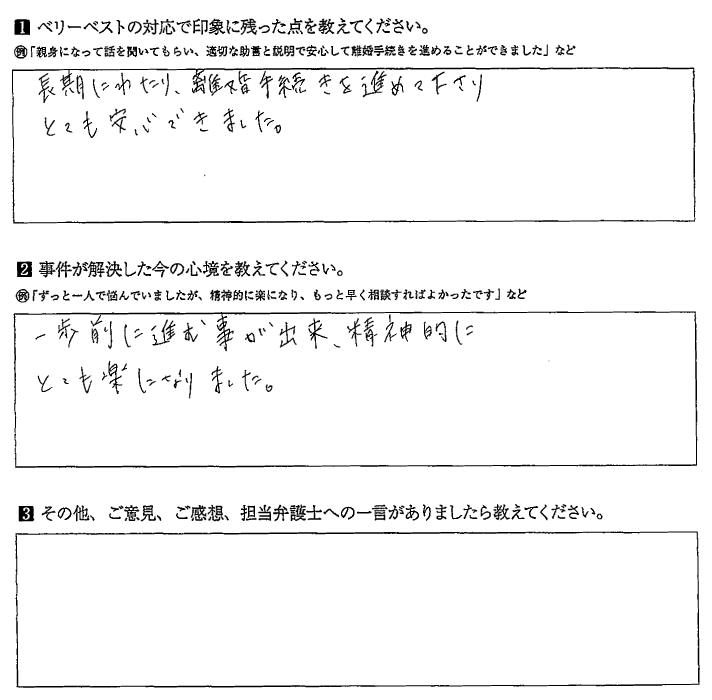 1 ベリーベストの対応で印象に残った点を教えてください。
例「親身になって話を聞いてもらい、適切な助言と説明で安心して離婚手続きを進めることができました」など
長期にわたり、離婚手続きを進めて下さり
とても安心できました。
2 事件が解決した今の心境を教えてください。
例「ずっと一人で悩んでいましたが、精神的に楽になり、もっと早く相談すればよかったです」など
一歩前に進む事が出来、精神的に
とても楽になりました。
3 その他、ご意見、ご感想、担当弁護士への一言がありましたら教えてください。